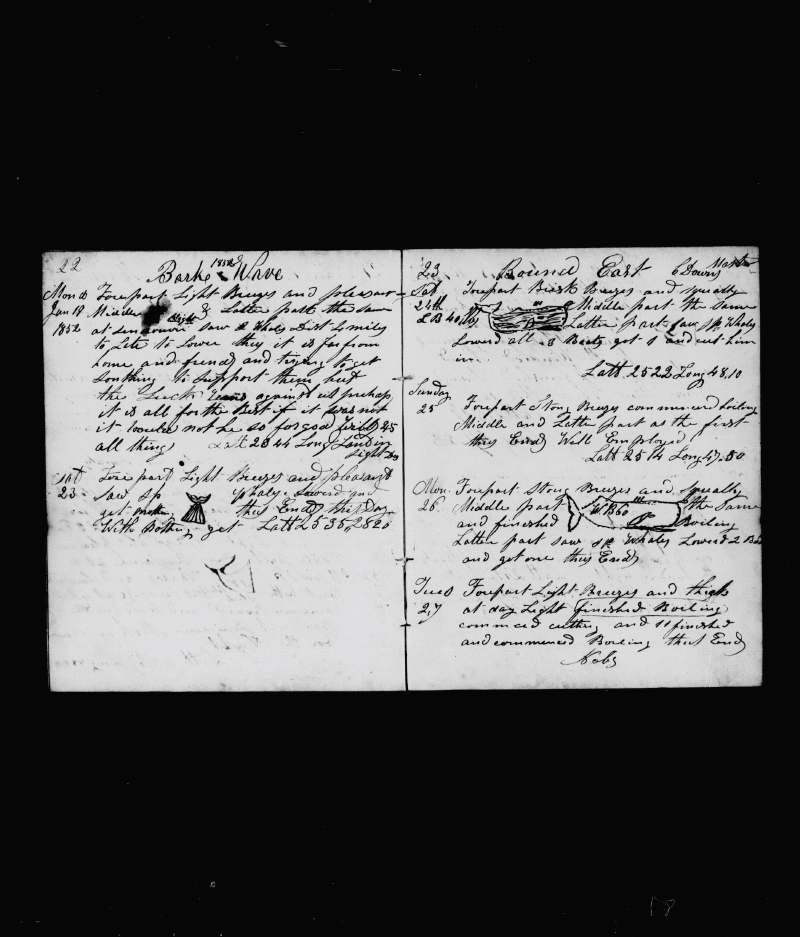 22
1852
Barke Wave
Mond Forepart Light Breezes and pleasant
Jan 18 Middle & Latter part the same
1852 at saw Whales Dist 6 miles
to Late to Lower they it is far from
home and friends and trying to get
Somthing to Support them but
the Luck against us perhaps
it is all for the Best if it was not
it would not be so for god wills
all things Latt 26 44 Long Land in
Sight
Sat Fore part Light Breezes and pleasant
23 Saw Sp Whales Lowerd and
get thus Ends this Day
With Bothing get Latt 25 35
23 Bound East C Downs Master
Sat Forepart Brisk Breezes and squally
24th Middle part the same
L B 40 bbls Latter part saw sp Whales
Lowerd all 3 Boats got 1 and cut him
in
Latt 25 22 Long 48,10
Sunday
25 Forepart Stong Breezes commenced boiling
Middle and Latter part as the first
thus Ends Well Employed
Latt 25 14 Long 47-50
Mon Forepart Stong Breezes and squally
26 Middle part W B60 the same
and finished Boiling
Latter part saw sp Whales Lowerd 2 Bts
and got one thus Ends
Tues Forepart Light Breezes and thick
27 at day Light finished Boiling
commced cutting and 11 finished
and commenced Boiling thus Ends
Nobs